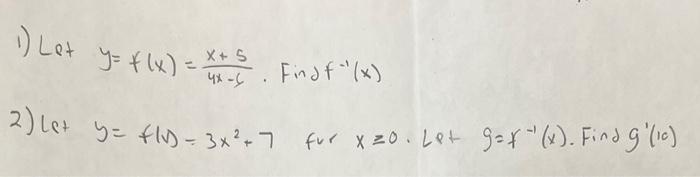 1) Let y = f(x) = (x+5)/(4x-5). Find f⁻¹(x)
2) Let y = f(x) = 3x²+7 for x ≥ 0. Let g = f⁻¹(x). Find g'(10)